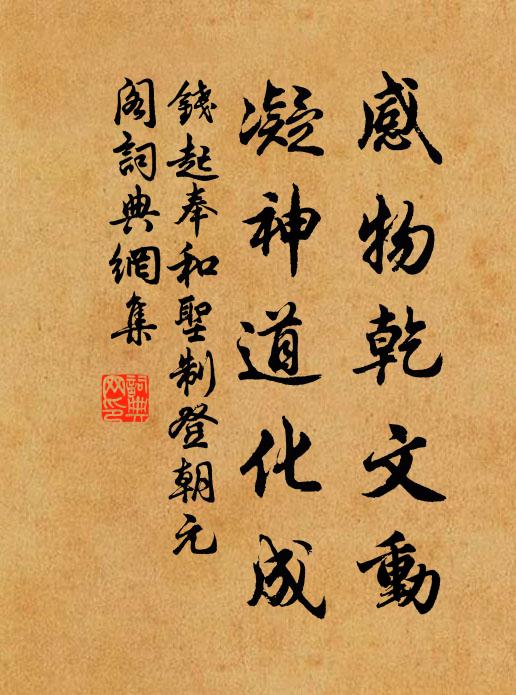 感物乾文動
凝神道化成
錢起奉和聖制登朝元
閣詞典網集
詞典
网印